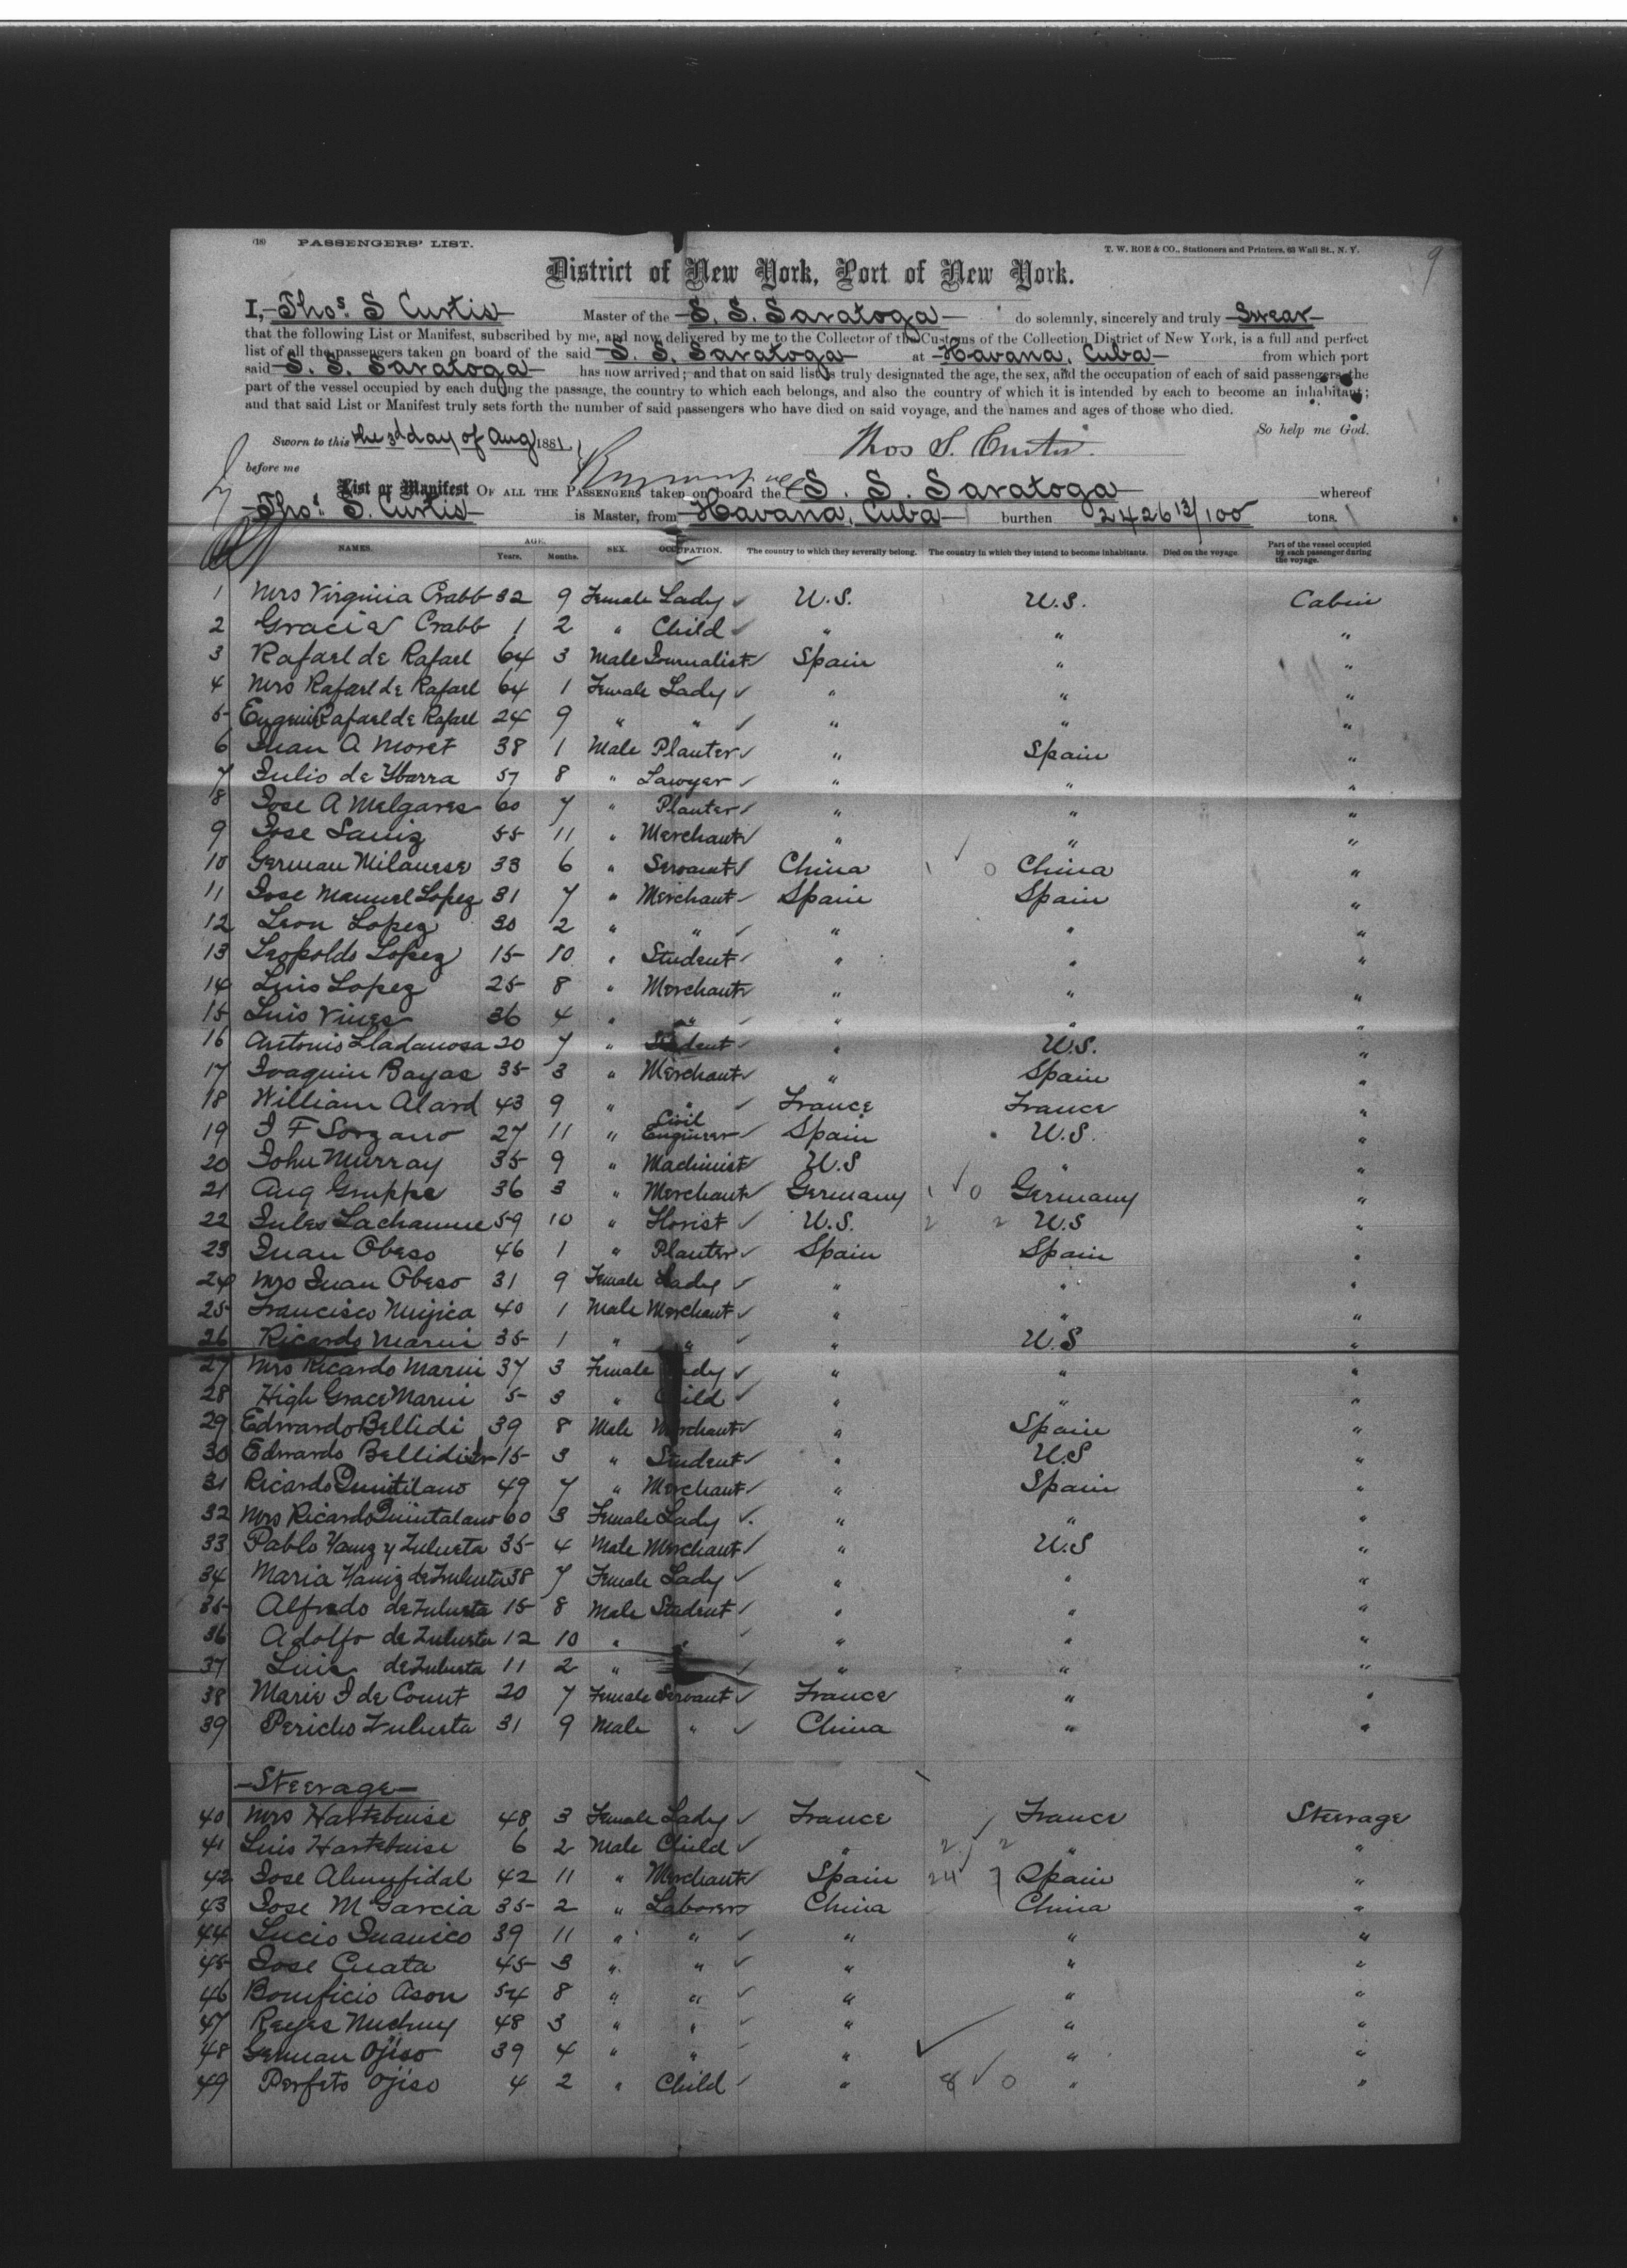 (18) PASSENGERS' LIST.
T. W. ROE & CO., Stationers and Printers, 63 Wall St., N. Y.
9
District of New York, Port of New York.
I, Thos. S Curtis Master of the S. S. Saratoga do solemnly, sincerely and truly Swear
that the following List or Manifest, subscribed by me, and now delivered by me to the Collector of the Customs of the Collection District of New York, is a full and perfect
list of all the passengers taken on board of the said S. S. Saratoga at Havana, Cuba from which port
said S. S. Saratoga has now arrived; and that on said list is truly designated the age, the sex, and the occupation of each of said passengers, the
part of the vessel occupied by each during the passage, the country to which each belongs, and also the country of which it is intended by each to become an inhabitant;
and that said List or Manifest truly sets forth the number of said passengers who have died on said voyage, and the names and ages of those who died.
So help me God.
Sworn to this the 3d day of Aug 1881, Thos S. Curtis.
before me
List or Manifest OF ALL THE PASSENGERS taken on board the S. S. Saratoga whereof
Thos. S. Curtis is Master, from Havana, Cuba burthen 2426 13/100 tons.
NAMES. AGE. Years. Months. SEX. OCCUPATION. The country to which they severally belong. The country in which they intend to become inhabitants. Died on the voyage. Part of the vessel occupied by each passenger during the voyage.
1 Mrs Virginia Crabb 32 9 Female Lady U.S. U.S. Cabin
2 Gracia Crabb 1 2 " Child " " "
3 Rafael de Rafael 64 3 Male Journalist Spain " "
4 Mrs Rafael de Rafael 64 1 Female Lady " " "
5 Rafael de Rafael 24 9 " " " " "
6 Juan A Moret 38 1 Male Planter " Spain "
7 Julio de Ybarra 57 8 " Lawyer " " "
8 Jose A Melgares 60 7 " Planter " " "
9 Jose 55 11 " Merchant " " "
10 German Milanese 33 6 " Servant China China "
11 Jose Manuel Lopez 31 7 " Merchant Spain Spain "
12 Leon Lopez 30 2 " " " " "
13 Leopoldo Lopez 15 10 " Student " " "
14 Luis Lopez 25 8 " Merchant " " "
15 Luis Vines 36 4 " " " " "
16 Antonio Lladanosa 20 7 " Student " U.S. "
17 Joaquin Bayas 35 3 " Merchant " Spain "
18 William Alard 43 9 " " France France "
19 J F Sorzano 27 11 " Civil Engineer Spain U.S. "
20 John Murray 35 9 " Machinist U.S " "
21 Aug Gruppe 36 3 " Merchant Germany Germany "
22 Jules Lachaume 59 10 " Florist U.S. U.S "
23 Juan Obeso 46 1 " Planter Spain Spain "
24 Mrs Juan Obeso 31 9 Female Lady " " "
25 Francisco Mujica 40 1 Male Merchant " " "
26 Ricardo Marui 35 1 " " " U.S "
27 Mrs Ricardo Marui 37 3 Female Lady " " "
28 High Grace Marui 5 3 " Child " " "
29 Edwardo Bellidi 39 8 Male Merchant " Spain "
30 Edwardo Bellidi Jr 15 3 " Student " U.S "
31 Ricardo Quintilano 49 7 " Merchant " Spain "
32 Mrs Ricardo Quintalano 60 3 Female Lady " " "
33 Pablo y Zulueta 35 4 Male Merchant " U.S "
34 Maria de Zulueta 38 7 Female Lady " " "
35 Alfredo de Zulueta 15 8 Male Student " " "
36 Adolfo de Zulueta 12 10 " " " " "
37 Luis de Zulueta 11 2 " " " " "
38 Marie J de Count 20 7 Female Servant France " "
39 Zulueta 31 9 Male " China " "
Steerage
40 Mrs Hartebuise 48 3 Female Lady France France Steerage
41 Luis Hartebuise 6 2 Male Child " " "
42 Jose 42 11 " Merchant Spain Spain "
43 Jose M Garcia 35 2 " Laborer China China "
44 Lucio Juanico 39 11 " " " " "
45 Jose Cuata 45 3 " " " " "
46 Bonificio Ason 54 8 " " " " "
47 Reyes 48 3 " " " " "
48 German Ojiso 39 4 " " " " "
49 Perfeto Ojiso 4 2 " Child " " "